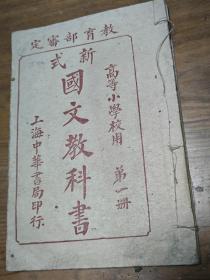 教育部審定
高等小學校用 第一冊
新式
國文教科書
上海中華書局印行